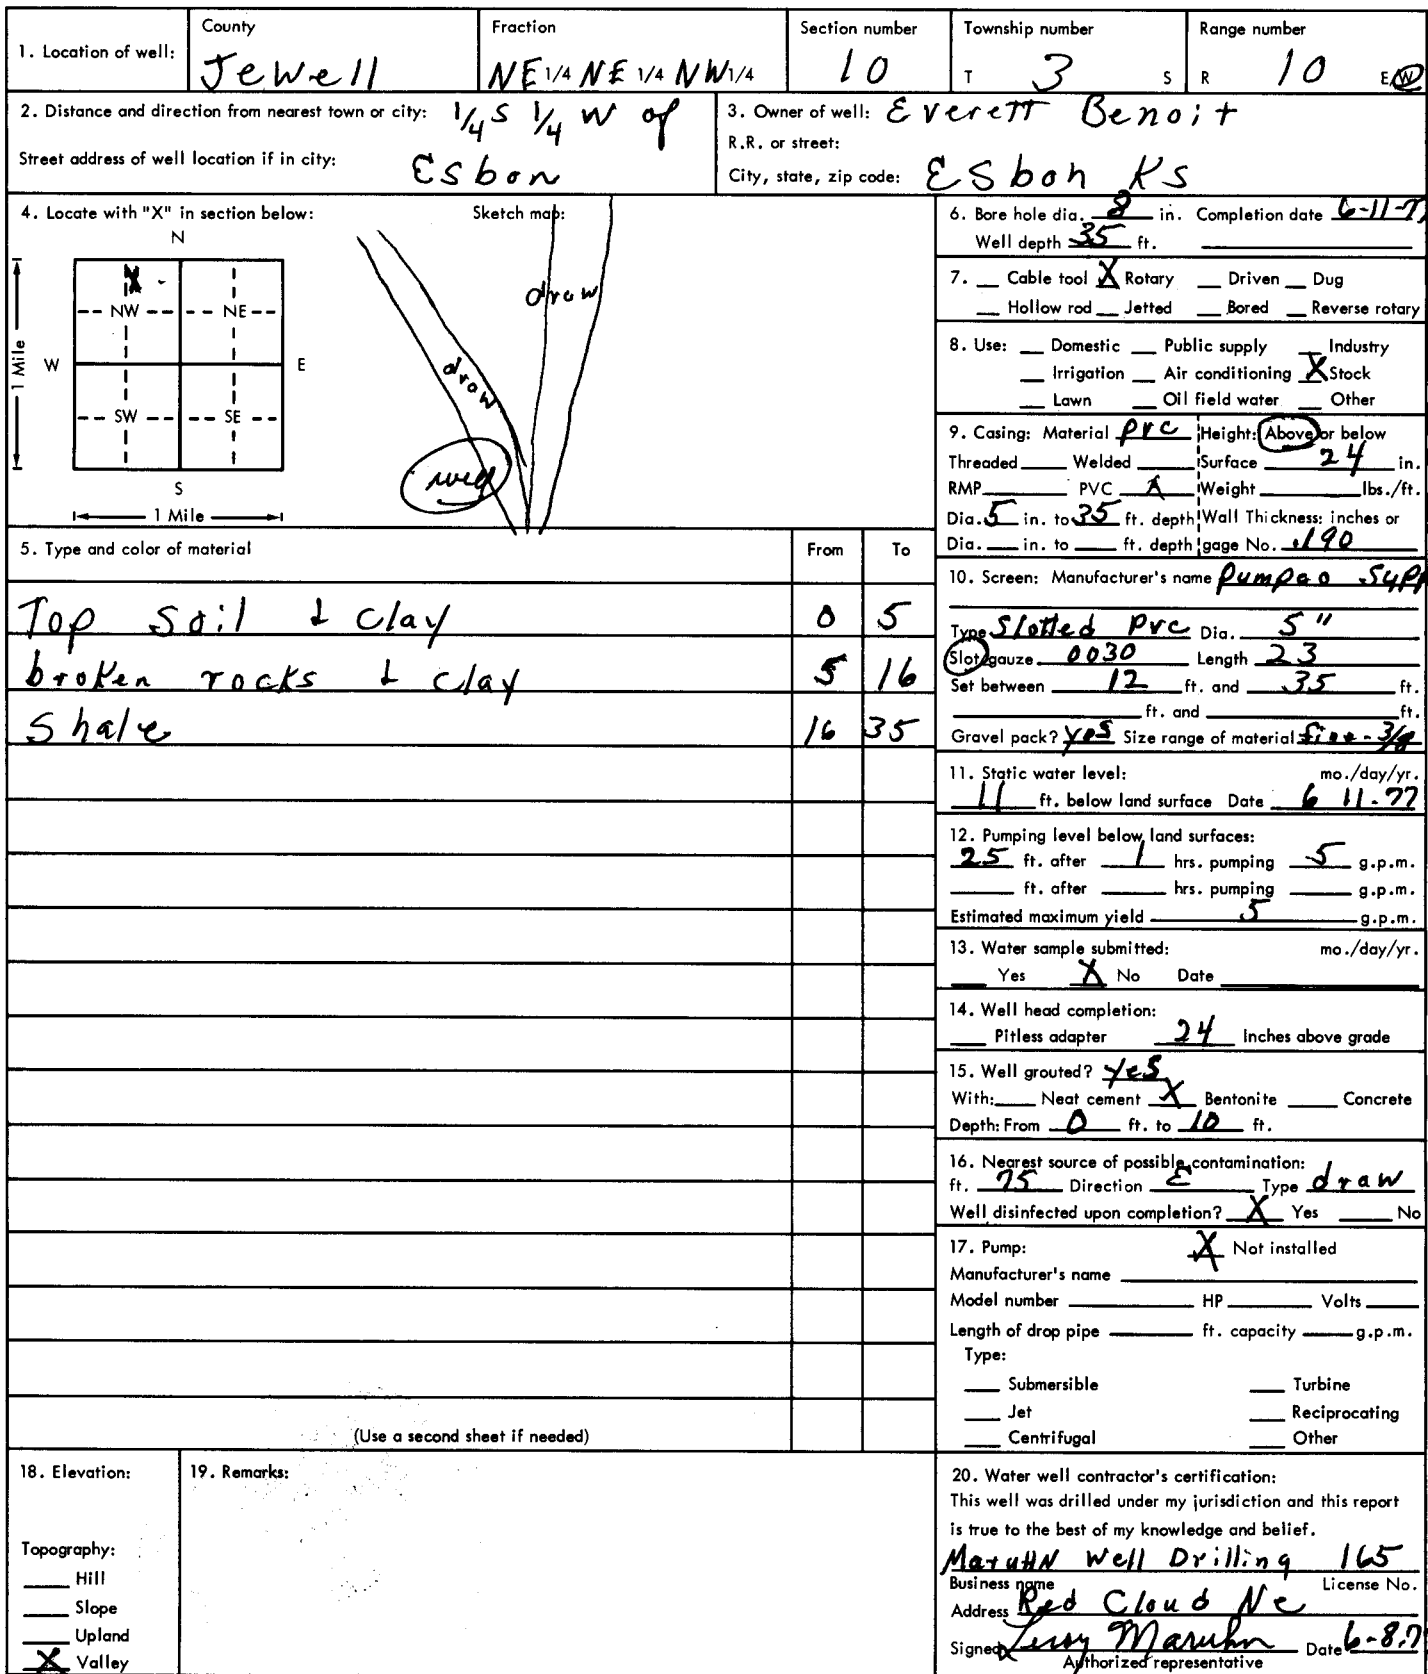 1. Location of well:
County
Jewell
Fraction
NE 1/4 NE 1/4 NW 1/4
Section number
10
Township number
T 3 S
Range number
R 10 E/W
2. Distance and direction from nearest town or city: 1/4 S 1/4 W of
Street address of well location if in city: Esbon
3. Owner of well: Everett Benoit
R.R. or street:
City, state, zip code: Esbon Ks
4. Locate with "X" in section below:
N
X
NW NE
W E
SW SE
S
1 Mile
1 Mile
Sketch map:
draw
draw
well
5. Type and color of material From To
Top Soil & Clay 0 5
broken rocks & clay 5 16
Shale 16 35
(Use a second sheet if needed)
6. Bore hole dia. 8 in. Completion date 6-11-7
Well depth 35 ft.
7. Cable tool X Rotary Driven Dug
Hollow rod Jetted Bored Reverse rotary
8. Use: Domestic Public supply Industry
Irrigation Air conditioning X Stock
Lawn Oil field water Other
9. Casing: Material pvc Height: Above or below
Threaded Welded Surface 24 in.
RMP PVC X Weight lbs./ft.
Dia. 5 in. to 35 ft. depth Wall Thickness: inches or
Dia. in. to ft. depth gage No. .190
10. Screen: Manufacturer's name Supp
Type Slotted pvc Dia. 5"
Slot/gauze 0030 Length 23
Set between 12 ft. and 35 ft.
ft. and ft.
Gravel pack? yes Size range of material fine - 3/8
11. Static water level: mo./day/yr.
11 ft. below land surface Date 6 11-77
12. Pumping level below land surfaces:
25 ft. after 1 hrs. pumping 5 g.p.m.
ft. after hrs. pumping g.p.m.
Estimated maximum yield 5 g.p.m.
13. Water sample submitted: mo./day/yr.
Yes X No Date
14. Well head completion:
Pitless adapter 24 Inches above grade
15. Well grouted? yes
With: Neat cement X Bentonite Concrete
Depth: From 0 ft. to 10 ft.
16. Nearest source of possible contamination:
ft. 75 Direction E Type draw
Well disinfected upon completion? X Yes No
17. Pump: X Not installed
Manufacturer's name
Model number HP Volts
Length of drop pipe ft. capacity g.p.m.
Type:
Submersible Turbine
Jet Reciprocating
Centrifugal Other
18. Elevation:
Topography:
Hill
Slope
Upland
X Valley
19. Remarks:
20. Water well contractor's certification:
This well was drilled under my jurisdiction and this report
is true to the best of my knowledge and belief.
MaruHN Well Drilling 165
Business name License No.
Address Red Cloud Ne
Signed Leroy Maruhn Date 6-8-7
Authorized representative